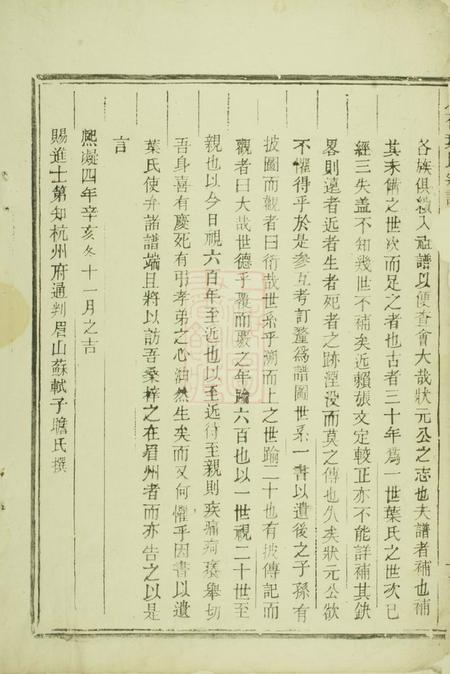 各族俱繳入祖譜以便查會大哉狀元公之志也夫譜者補也補
其未備之世次而足之者也古者三十年為一世葉氏之世次已
經三失盖不知幾世不補矣近賴張文定較正亦不能詳補其缺
畧則遠者近者生者死者之跡湮没而莫之傳也久矣狀元公欲
不懼得乎於是參互考訂釐為譜圖世系一書以遺後之子孫有
披圖而觀者曰衍哉世系乎溯而上之世踰二十也有披傳記而
觀者曰大哉世德乎覆而嚴之年踰六百也以一世視二十世至
親也以今日視六百年至近也以至近待至親則疾痛疴癢舉切
吾身喜有慶死有弔孝弟之心油然生矣而又何懼乎因書以遺
葉氏使弁諸譜端且將以訪吾桑梓之在眉州者而亦告之以是
言
熙凝四年辛亥冬十一月之吉
賜進士第知杭州府通判眉山蘇軾子瞻氏撰